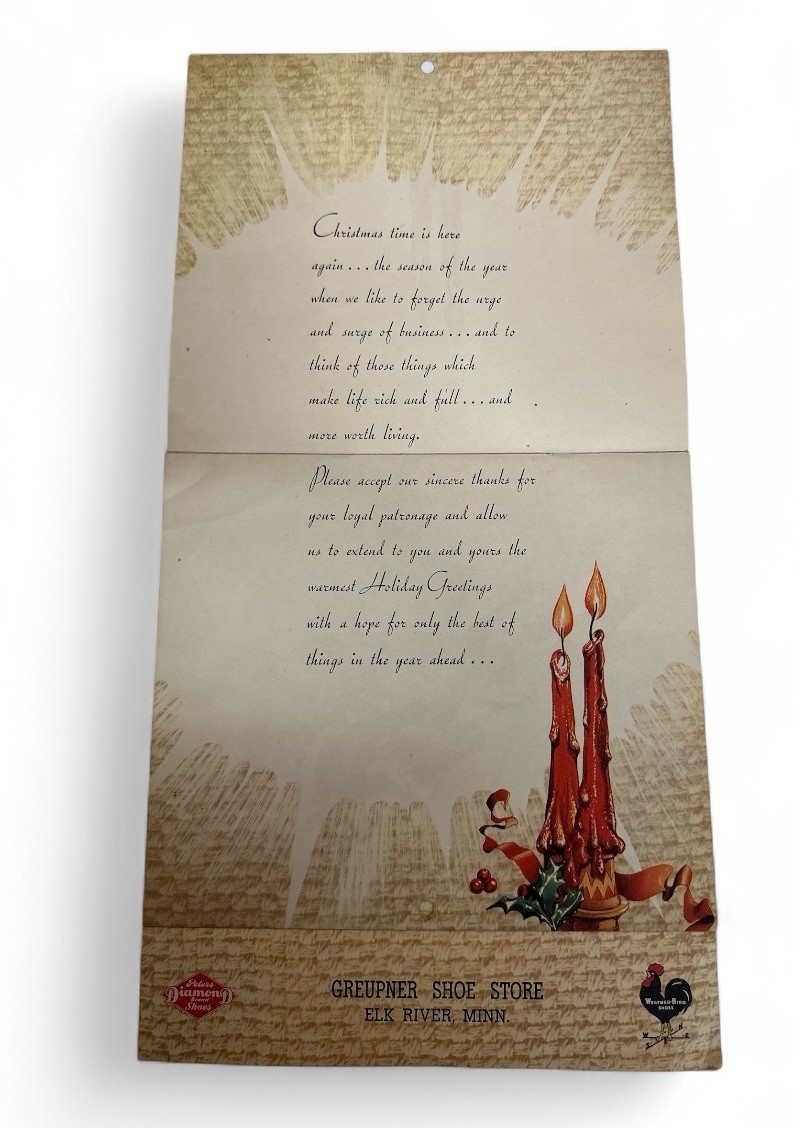 Christmas time is here
again...the season of the year
when we like to forget the urge
and surge of business...and to
think of those things which
make life rich and full...and
more worth living.
Please accept our sincere thanks for
your loyal patronage and allow
us to extend to you and yours the
warmest Holiday Greetings
with a hope for only the best of
things in the year ahead...
Peters
Diamond
Brand
Shoes
GREUPNER SHOE STORE
ELK RIVER, MINN.
WEATHER-BIRD
SHOES
W N
S E